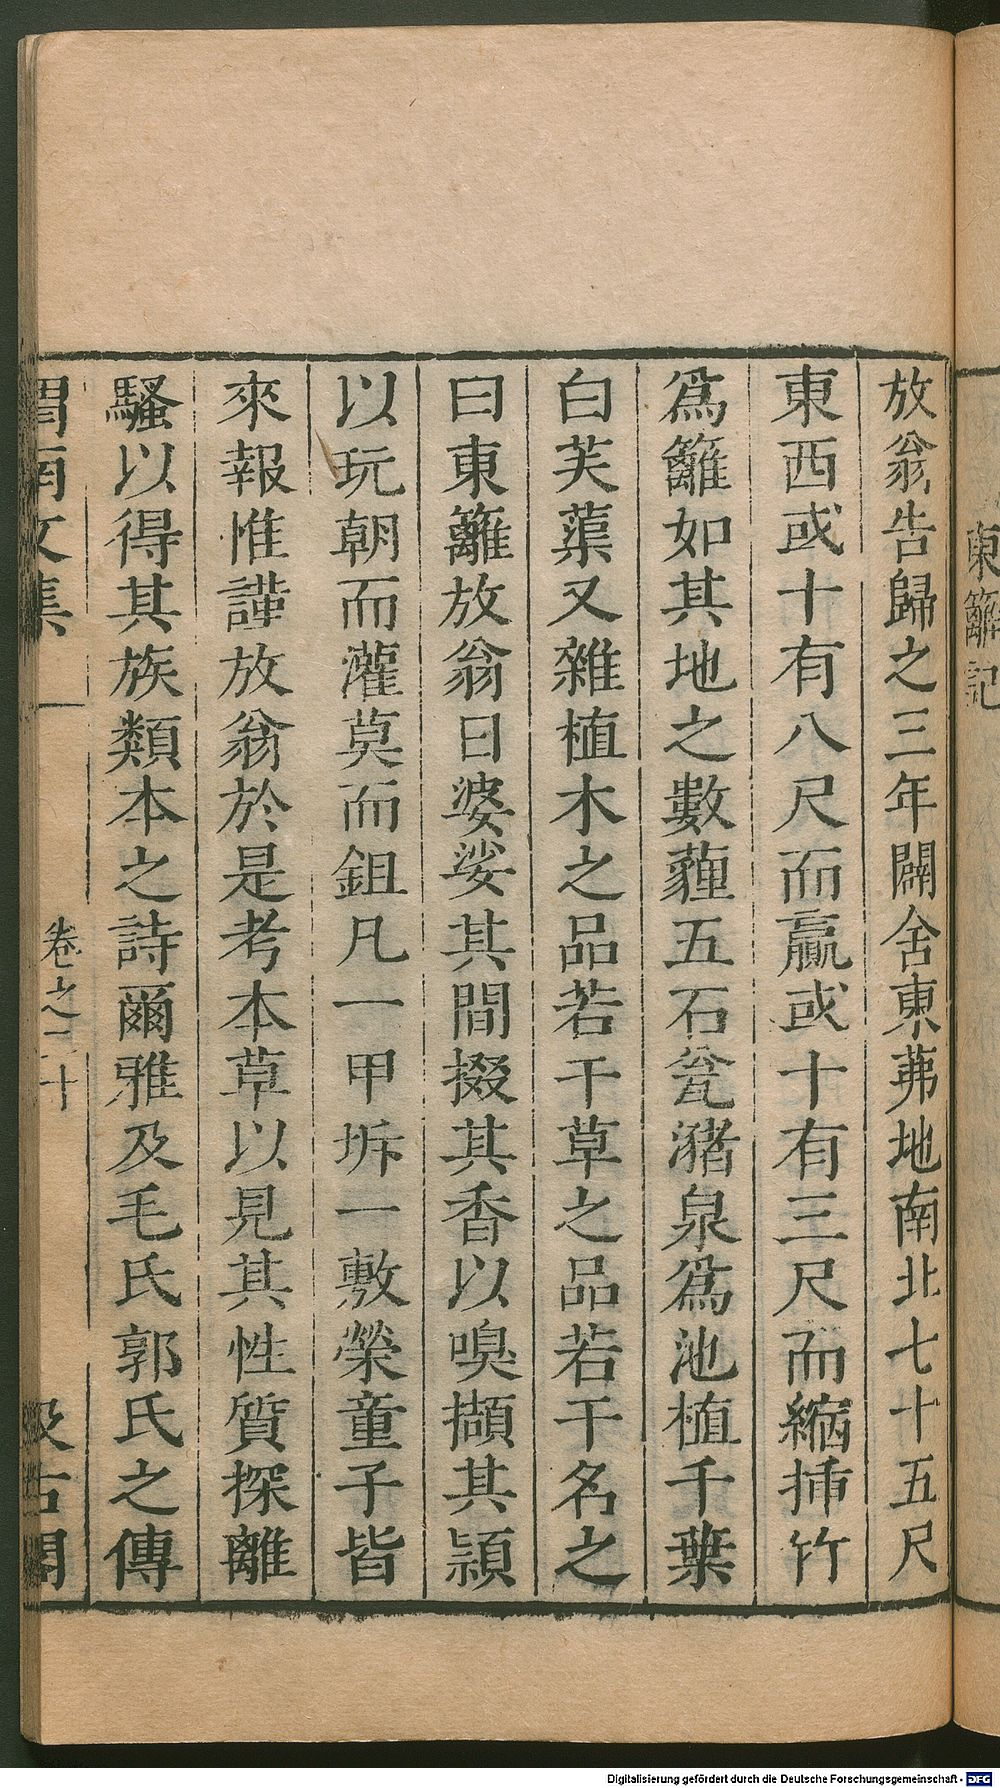 東籬記
放翁告歸之三年闢舍東茀地南北七十五尺
東西或十有八尺而贏或十有三尺而縮揷竹
爲籬如其地之數薶五石瓮瀦泉爲池植千葉
白芙蕖又雜植木之品若干草之品若干名之
曰東籬放翁日婆娑其間掇其香以嗅擷其頴
以玩朝而灌莫而鉏凡一甲坼一敷榮童子皆
來報惟謹放翁於是考本草以見其性質探離
騷以得其族類本之詩爾雅及毛氏郭氏之傳
渭南文集
卷之二十
汲古閣
Digitalisierung gefördert durch die Deutsche Forschungsgemeinschaft - DFG